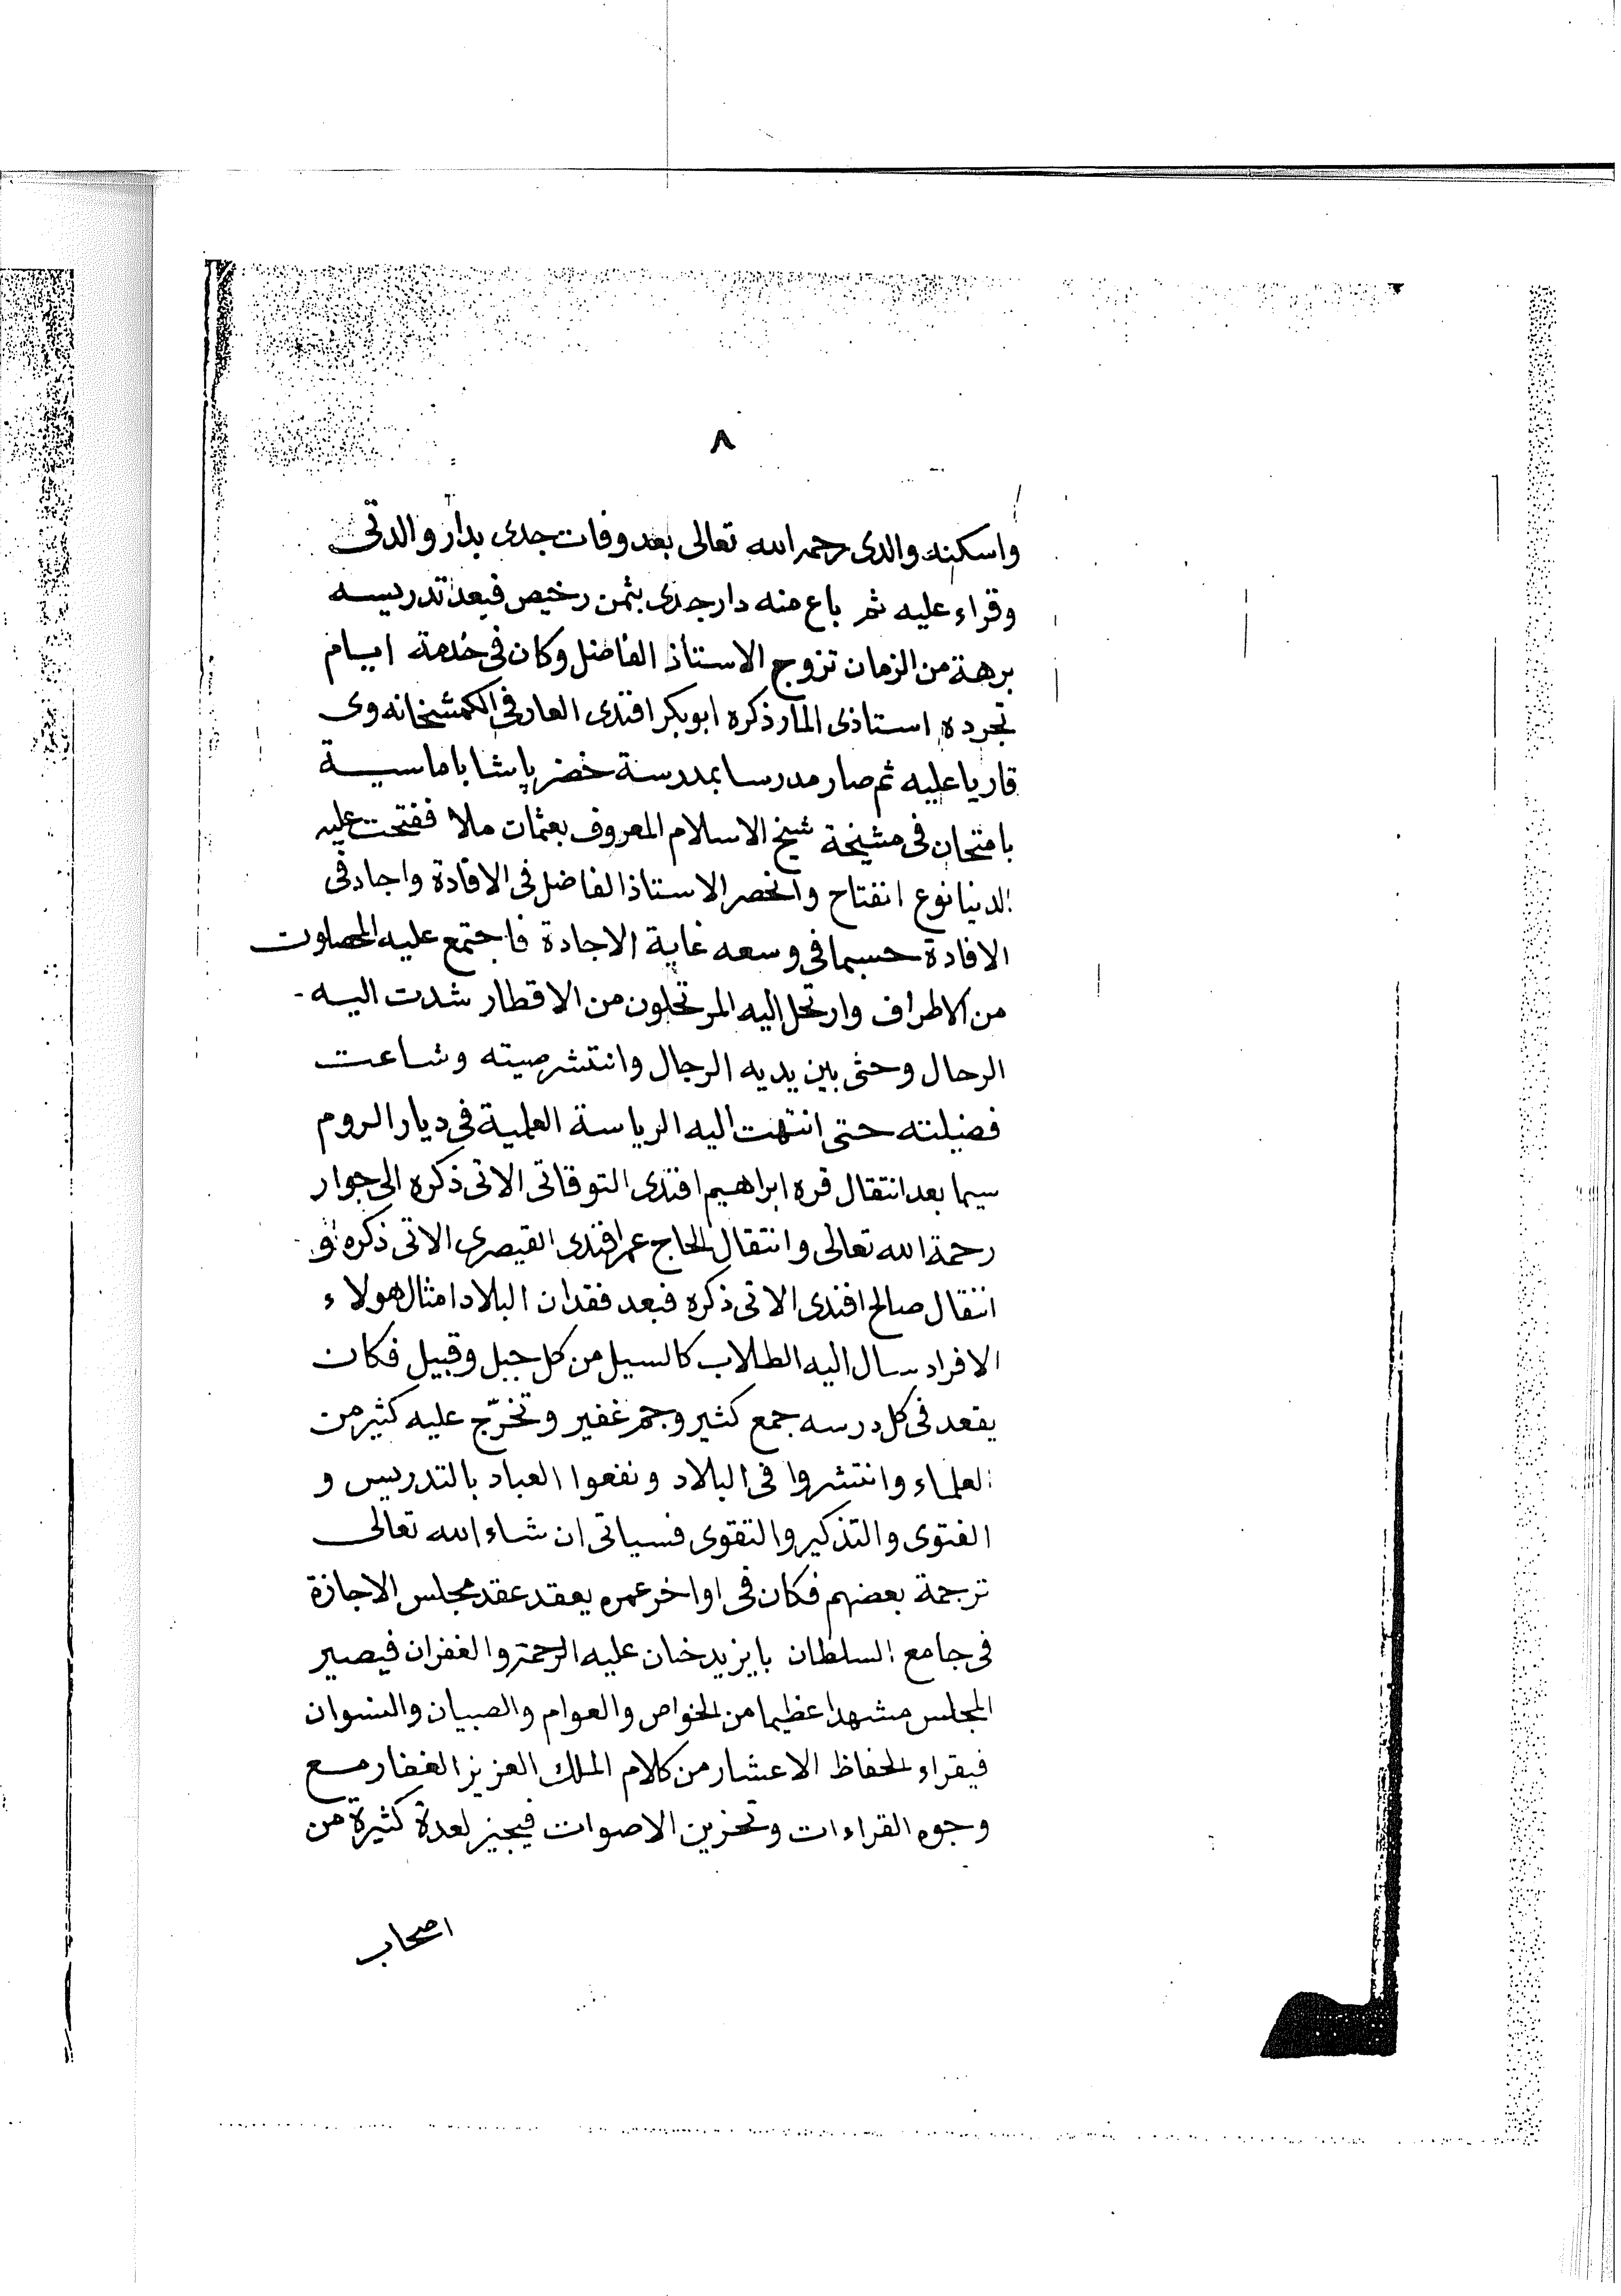 ٨
واسكنه والدى رحمه الله تعالى بعد وفات جدى بدار والدتى
وقراء عليه ثم باع منه دار جدى بثمن رخيص فبعد تدريسه
برهة من الزمان تزوج الاستاذ الفاضل وكان فى خدمة ايام
تجرده استاذى المار ذكره ابوبكر افندى العارفى الكمشخانه وى
قاريا عليه ثم صار مدرسا بمدرسة خضر پاشا باماسية
بامتحان فى مشيخة شيخ الاسلام المعروف بعثمان ملا ففتحت عليه
الدنيا نوع انفتاح وانحصر الاستاذ الفاضل فى الافادة واجاد فى
الافادة حسبما فى وسعه غاية الاجادة فاجتمع عليه المحصلون
من الاطراف وارتحل اليه المرتحلون من الاقطار شدت اليه
الرحال وحثى بين يديه الرجال وانتشر صيته وشاعت
فضيلته حتى انتهت اليه الرياسة العلمية فى ديار الروم
سيما بعد انتقال قره ابراهيم افندى التوقاتى الاتى ذكره الى جوار
رحمة الله تعالى وانتقال الحاج عمر افندى القيصرى الاتى ذكره و
انتقال صالح افندى الاتى ذكره فبعد فقدان البلاد امثال هولاء
الافراد سال اليه الطلاب كالسيل من كل جبل وقبيل فكان
يقعد فى كل درسه جمع كثير وجم غفير وتخرّج عليه كثير من
العلماء وانتشروا فى البلاد ونفعوا العباد بالتدريس و
الفتوى والتذكير والتقوى فسياتى ان شاء الله تعالى
ترجمة بعضهم فكان فى اواخر عمره يعقد عقد مجلس الاجازة
فى جامع السلطان بايزيد خان عليه الرحمة والغفران فيصير
المجلس مشهدا عظيما من الخواص والعوام والصبيان والنسوان
فيقراء الحفاظ الاعشار من كلام الملك العزيز الغفار مع
وجوه القراءات وتحزين الاصوات فيجيز لعدة كثيرة من
اصحاب